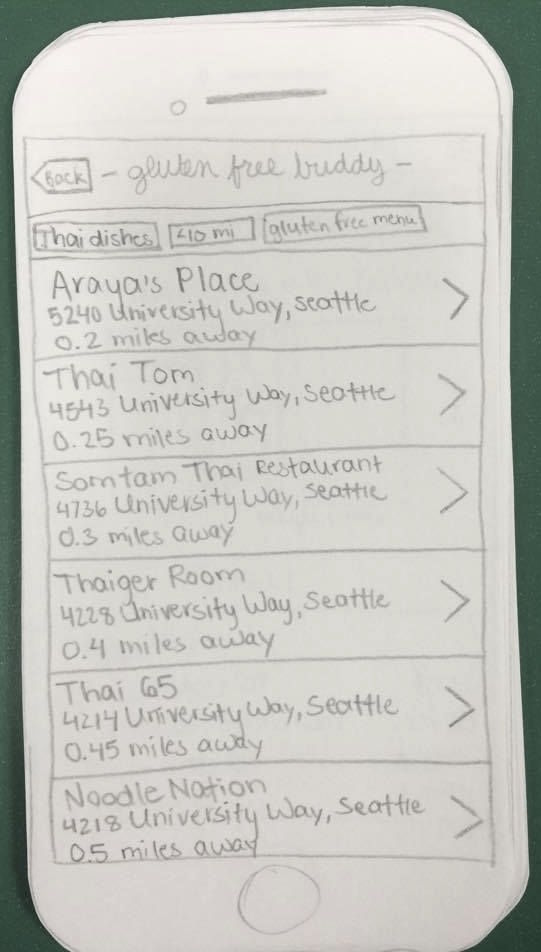 Back - gluten free buddy -
Thai dishes <10 mi gluten free menu
Araya's Place
5240 University Way, Seattle
0.2 miles away
Thai Tom
4543 University Way, Seattle
0.25 miles away
Somtam Thai Restaurant
4736 University Way, Seattle
0.3 miles away
Thaiger Room
4228 University Way, Seattle
0.4 miles away
Thai 65
4214 University Way, Seattle
0.45 miles away
Noodle Nation
4218 University Way, Seattle
0.5 miles away